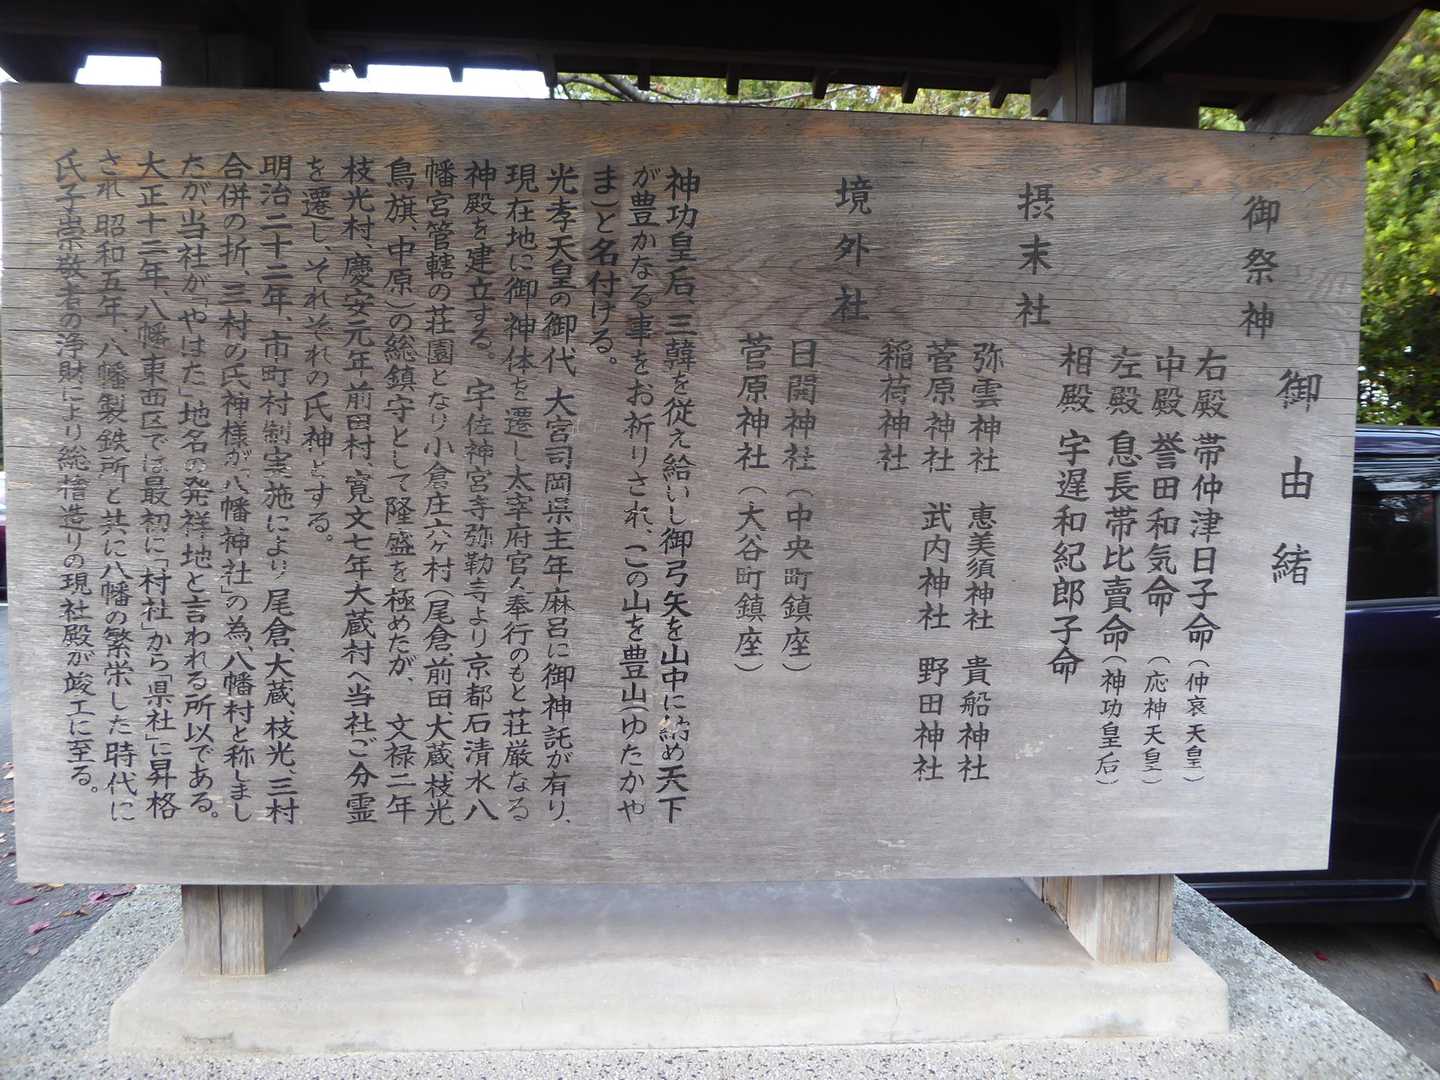 御由緒
御祭神
右殿 帯仲津日子命（仲哀天皇）
中殿 誉田和気命（応神天皇）
左殿 息長帯比賣命（神功皇后）
相殿 宇遅和紀郎子命
摂末社
弥雲神社 恵美須神社 貴船神社
菅原神社 武内神社 野田神社
稲荷神社
境外社
日開神社（中央町鎮座）
菅原神社（大谷町鎮座）
神功皇后、三韓を従え給いし御弓矢を山中に納め天下
が豊かなる事をお祈りされ、この山を豊山（ゆたかや
ま）と名付ける。
光孝天皇の御代 大宮司岡県主年麻呂に御神託が有り、
現在地に御神体を遷し太宰府官人奉行のもと荘厳なる
神殿を建立する。宇佐神宮寺弥勒寺より京都石清水八
幡宮管轄の荘園となり小倉庄六ヶ村（尾倉、前田、大蔵、枝光
鳥旗、中原）の総鎮守として隆盛を極めたが、 文禄二年
枝光村、慶安元年前田村、寛文七年大蔵村へ当社ご分霊
を遷し、それぞれの氏神とする。
明治二十二年、市町村制実施により 尾倉、大蔵、枝光、三村
合併の折、三村の氏神様が「八幡神社」の為、八幡村と称しまし
たが、当社が「やはた」地名の発祥地と言われる所以である。
大正十二年、八幡東西区では最初に「村社」から「県社」に昇格
され 昭和五年、八幡製鉄所と共に八幡の繁栄した時代に
氏子崇敬者の浄財により総檜造りの現社殿が竣工に至る。